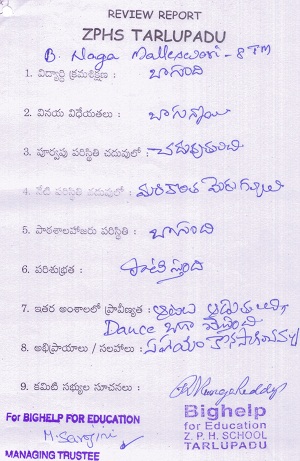 REVIEW REPORT
ZPHS TARLUPADU
B. Naga Malleswari - 8TM
1. విద్యార్థి క్రమశిక్షణ : బాగుంది
2. వినయ విధేయతలు : బాగున్నాయి
3. పూర్వపు పరిస్థితి చదువులో : చదువుతుంది
4. నేటి పరిస్థితి చదువులో : మరికొంత మెరుగవ్వాలి
5. పాఠశాలహాజరు పరిస్థితి : బాగుంది
6. పరిశుభ్రత : పాటిస్తుంది
7. ఇతర అంశాలలో ప్రావీణ్యత : ఆటలు ఆడుతుంది
Dance బాగా చేస్తుంది
8. అభిప్రాయాలు / సలహాలు : సహాయం కొనసాగించవచ్చు
9. కమిటి సభ్యుల సూచనలు :
For BIGHELP FOR EDUCATION
M. Sarojini
MANAGING TRUSTEE
Bighelp
for Education
Z. P. H. SCHOOL
TARLUPADU